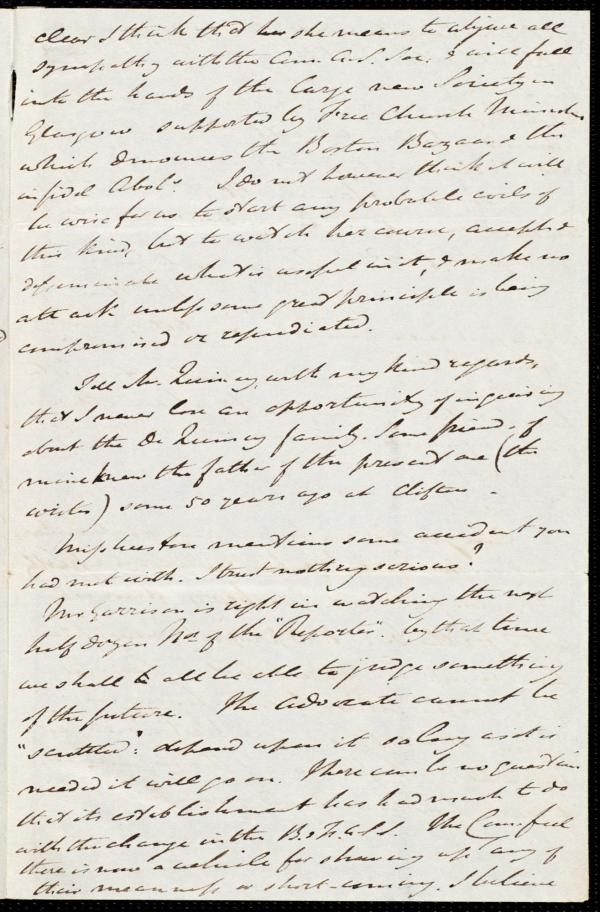 clear I think that she means to abjure all
sympathy with the Am. A.S. Soc. & will fall
into the hands of the large new Society in
Glasgow supported by Free Church Ministers
which denounces the Boston Bazaar & the
infidel Abol.s I do not however think it will
be wise for us to start any probable evils of
this kind, but to watch her course, accept &
disseminate what is useful in it, & make no
attack unless some great principle is being
compromised or repudiated.
Tell Mr. Quincy, with my kind regards,
that I never lose an opportunity of inquiring
about the De Quincy family. Some friends of
mine knew the father of the present one (the
writer) some 50 years ago at Clifton.
Miss Weston mentions some accident you
had met with. I trust nothing serious?
Mr Garrison is right in watching the next
half dozen Nos of the "Reporter". by that time
we shall all be able to judge something
of the future. The Advocate cannot be
"scuttled": depend upon it so long as it is
needed it will go on. There can be no question
that its establishment has had much to do
with the change in the B. & F. A.S.S. The Com. feel
there is now a vehicle for shewing up any of
their meanness or short-coming. I believe